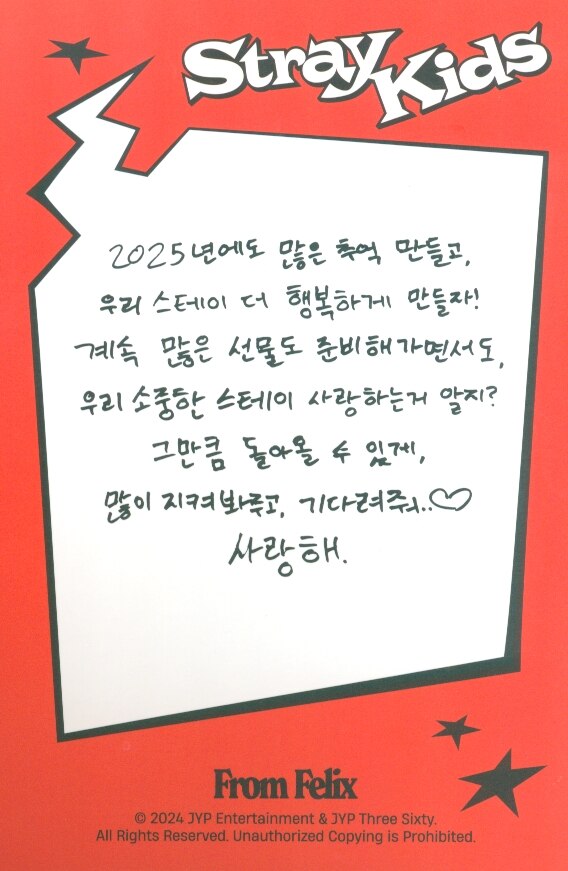 Stray Kids
2025년에도 많은 추억 만들고,
우리 스테이 더 행복하게 만들자!
계속 많은 선물도 준비해가면서도,
우리 소중한 스테이 사랑하는거 알지?
그만큼 돌아올 수 있게,
많이 지켜봐주고, 기다려줘..♡
사랑해.
From Felix
© 2024 JYP Entertainment & JYP Three Sixty.
All Rights Reserved. Unauthorized Copying is Prohibited.